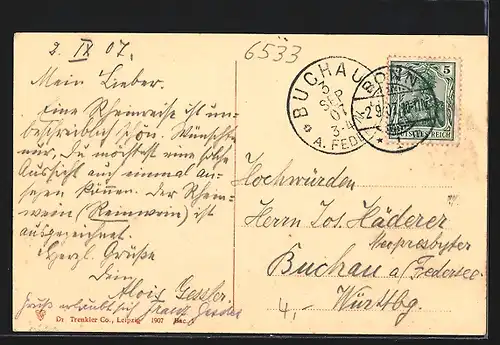 2. IX 07.
6533
Mein Lieber.
Eine Rheinreise ist un-
beschreiblich schön. Wünschte
nur, Du möchtest eine solche
Aussicht auch einmal an-
sehen können. Der Rhein-
wein (Reinwein) ist
ausgezeichnet.
Herzl. Grüße
Dein
Alois Gessler
Gruß erlaubt sich
Dr. Trenkler Co., Leipzig. 1907
BUCHAU
5 SEP
07
3-4
A. FED.
BONN
2.9.07
5
DEUTSCHES REICH
Hochwürden
Herrn Jos. Häderer
Neopresbyter
Buchau a/Federsee
4,- Württbg.